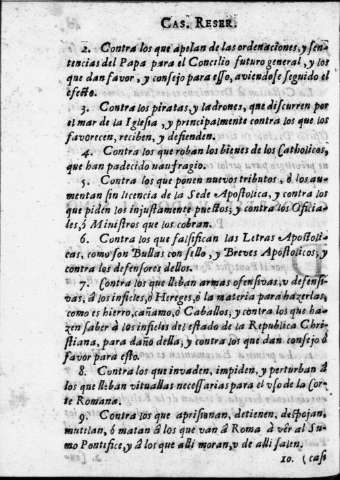 CAS. RESER.
2. Contra los que apelan de las ordenaciones, y sen-
tencias del Papa para el Concilio futuro general, y los
que dan favor, y consejo para esso, aviendose seguido el
efecto.
3. Contra los piratas, y ladrones, que discurren por
el mar de la Iglesia, y principalmente contra los que los
favorecen, reciben, y defienden.
4. Contra los que roban los bienes de los Catholicos,
que han padecido naufragio.
5. Contra los que ponen nuevos tributos, ò los au-
mentan sin licencia de la Sede Apostolica, y contra los
que piden los injustamente puestos, y contra los Oficia-
les, ò Ministros que los cobran.
6. Contra los que falsifican las Letras Apostoli-
cas, como son Bullas con sello, y Breves Apostolicos, y
contra los defensores dellos.
7. Contra los que lleban armas ofensivas, v defensi-
vas, à los infieles, ò Hereges, ò la materia para hazerlas,
como es hierro, cañamo, ò Caballos, y contra los que ha-
zen saber à los infieles del estado de la Republica Chri-
stiana, para daño della, y contra los que dan consejo ò
favor para esto.
8. Contra los que invaden, impiden, y perturban à
los que lleban vituallas necessarias para el vso de la Cor-
te Romana.
9. Contra los que aprisionan, detienen, despojan,
mutilan, ò matan à los que van à Roma à vèr al Su-
mo Pontifice, y à los que alli moran, v de alli salen.
10. (casi